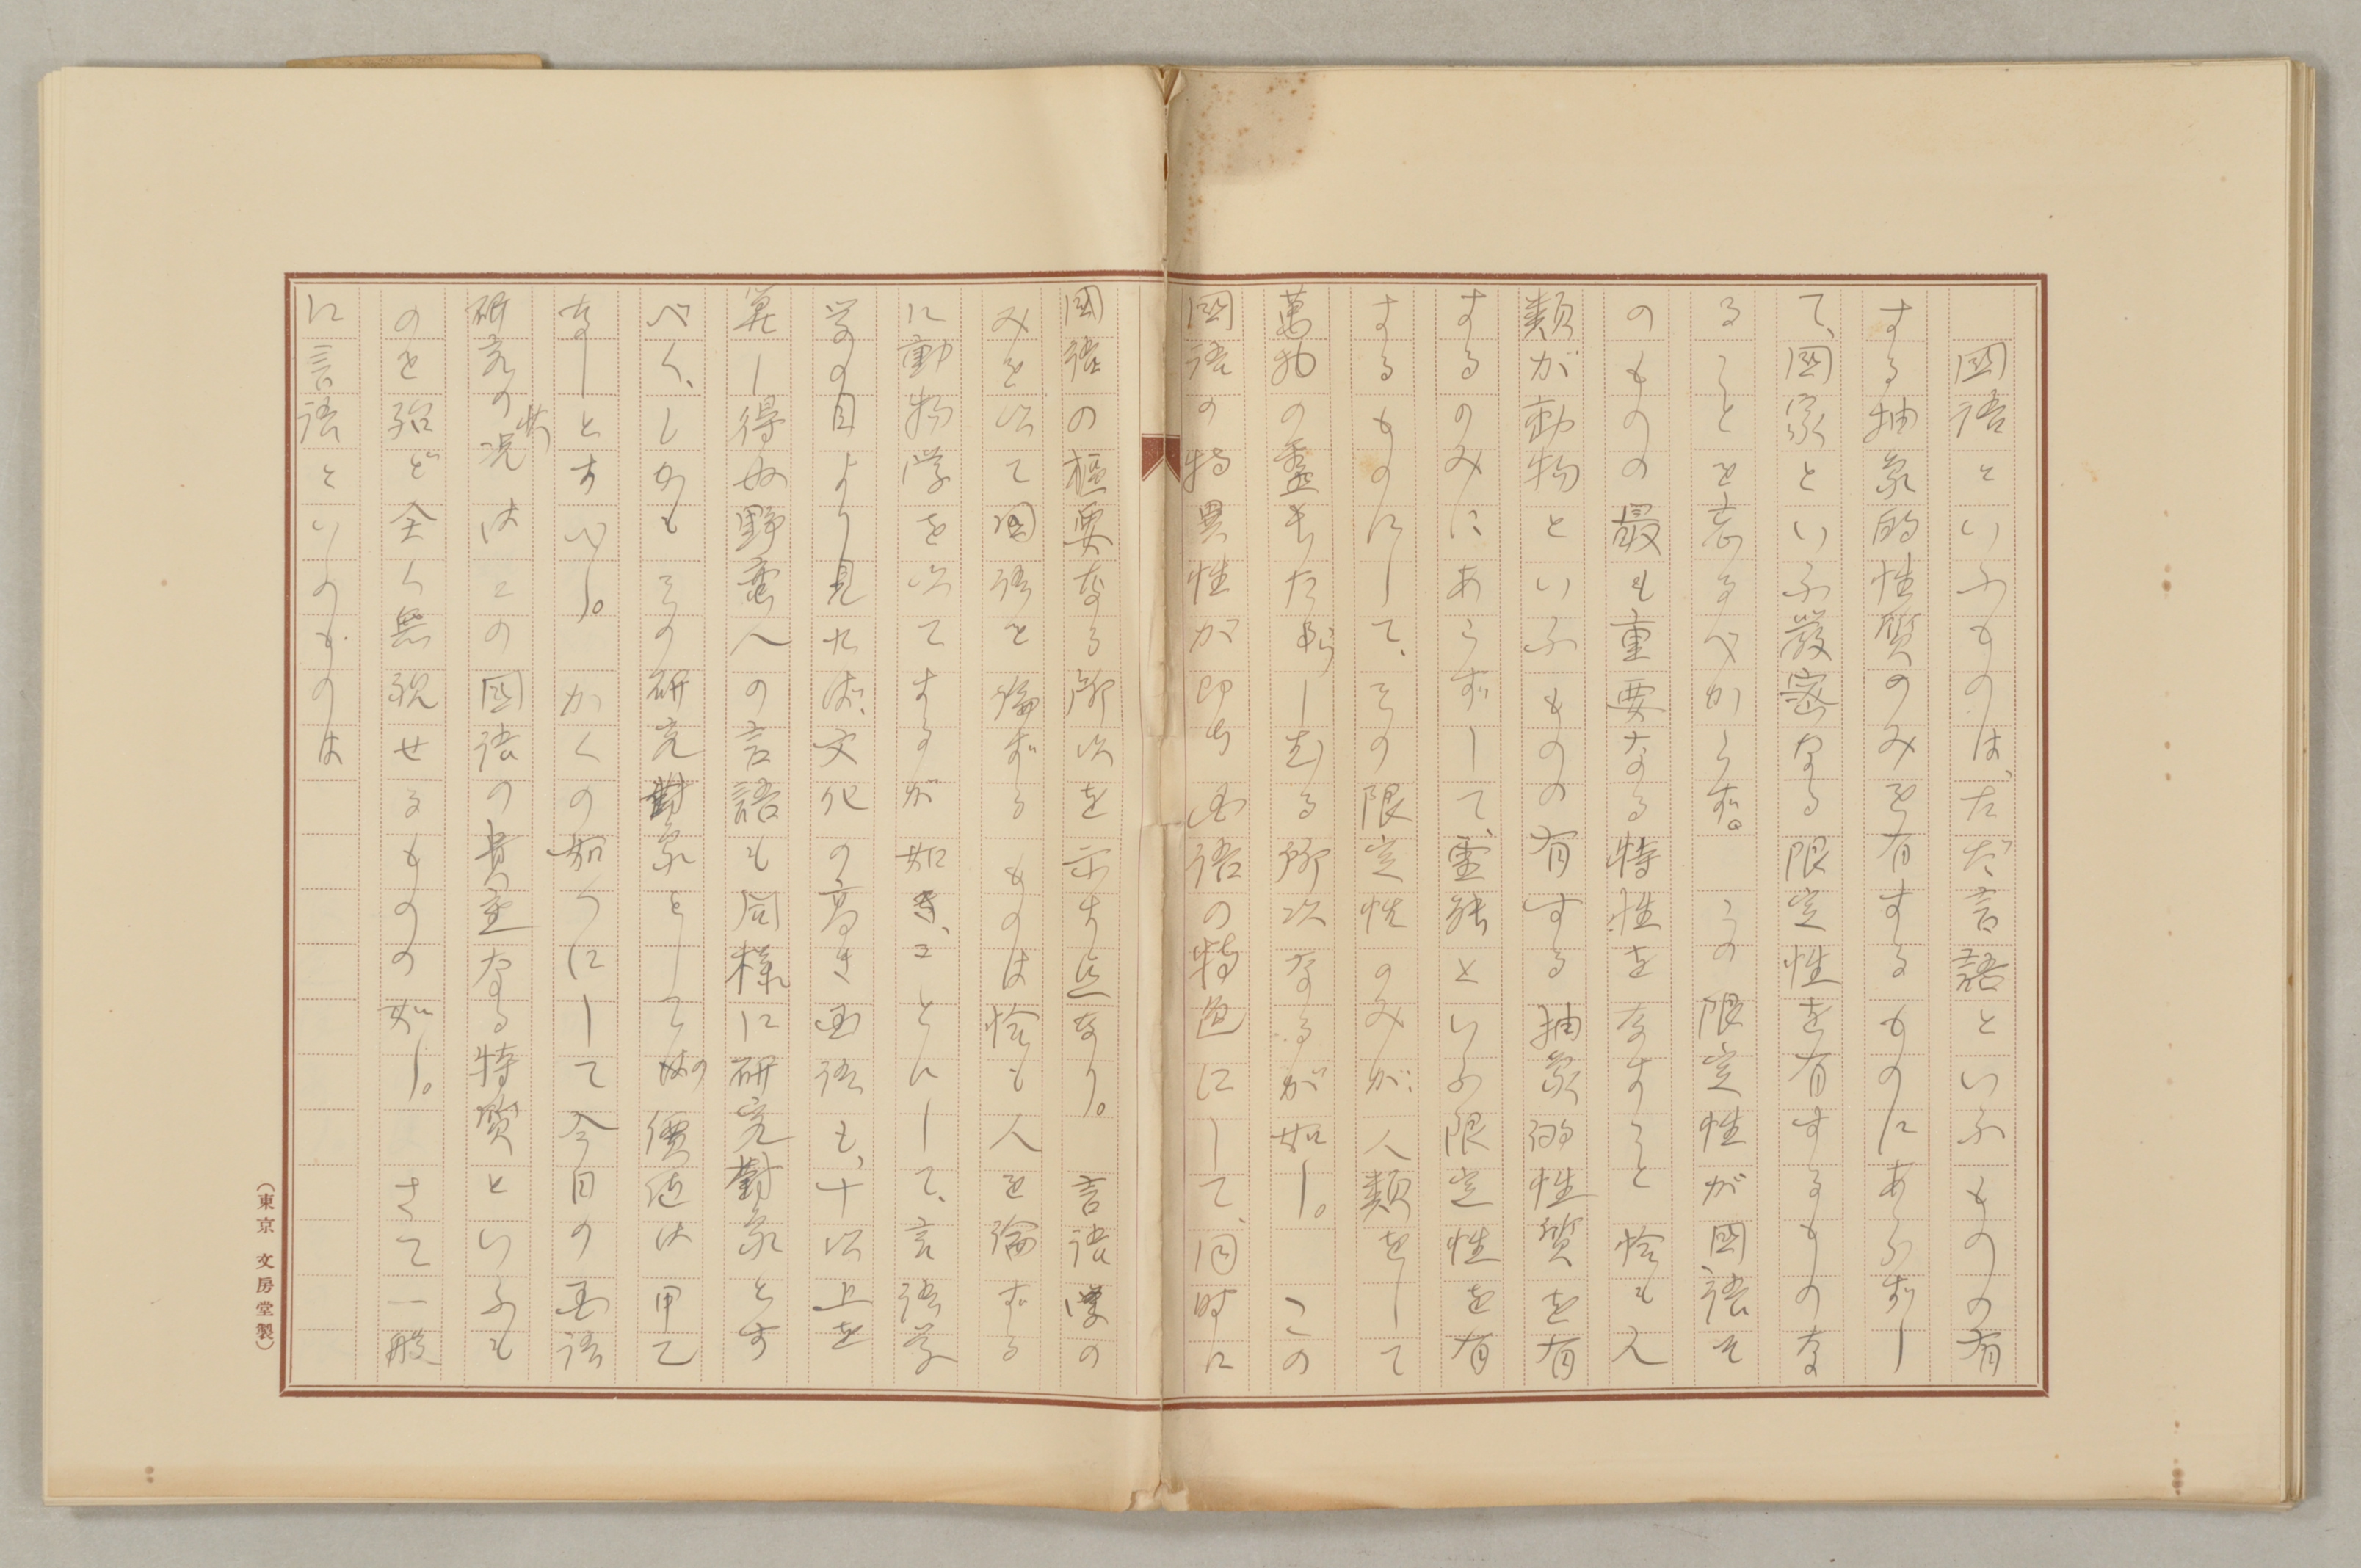 國語といふものは、ただ言語といふものの有
する抽象的性質のみを有するものにあらずし
て、國家といふ嚴密なる限定性を有するものな
ることを忘るべからず。この限定性が國語そ
のものの最も重要なる特性をなすこと恰も人
類が動物といふものの有する抽象的性質を有
するのみにあらずして、霊能といふ限定性を有
するものにして、その限定性のみが、人類をして
萬物の霊長たらしむる所以なるが如し。この
國語の特異性が即ち国語の特色にして、同時に
國語の樞要なる所以を示す点なり。言語學の
みを以て国語を論ずるものは恰も人を論ずる
に動物学を以てするが如きことにして、言語学
学の目より見れば、文化の高き国語も、十以上を
算し得ぬ野蛮人の言語も同樣に研究對象とす
べく、しかもその研究對象としての價値は甲乙
なしとすべし。かくの如くにして今日の国語
研究の状況はこの国語の貴重なる特質といふも
のを殆ど全く無視せるものの如し。さて一般
に言語といのものは
（東京 文房堂製）